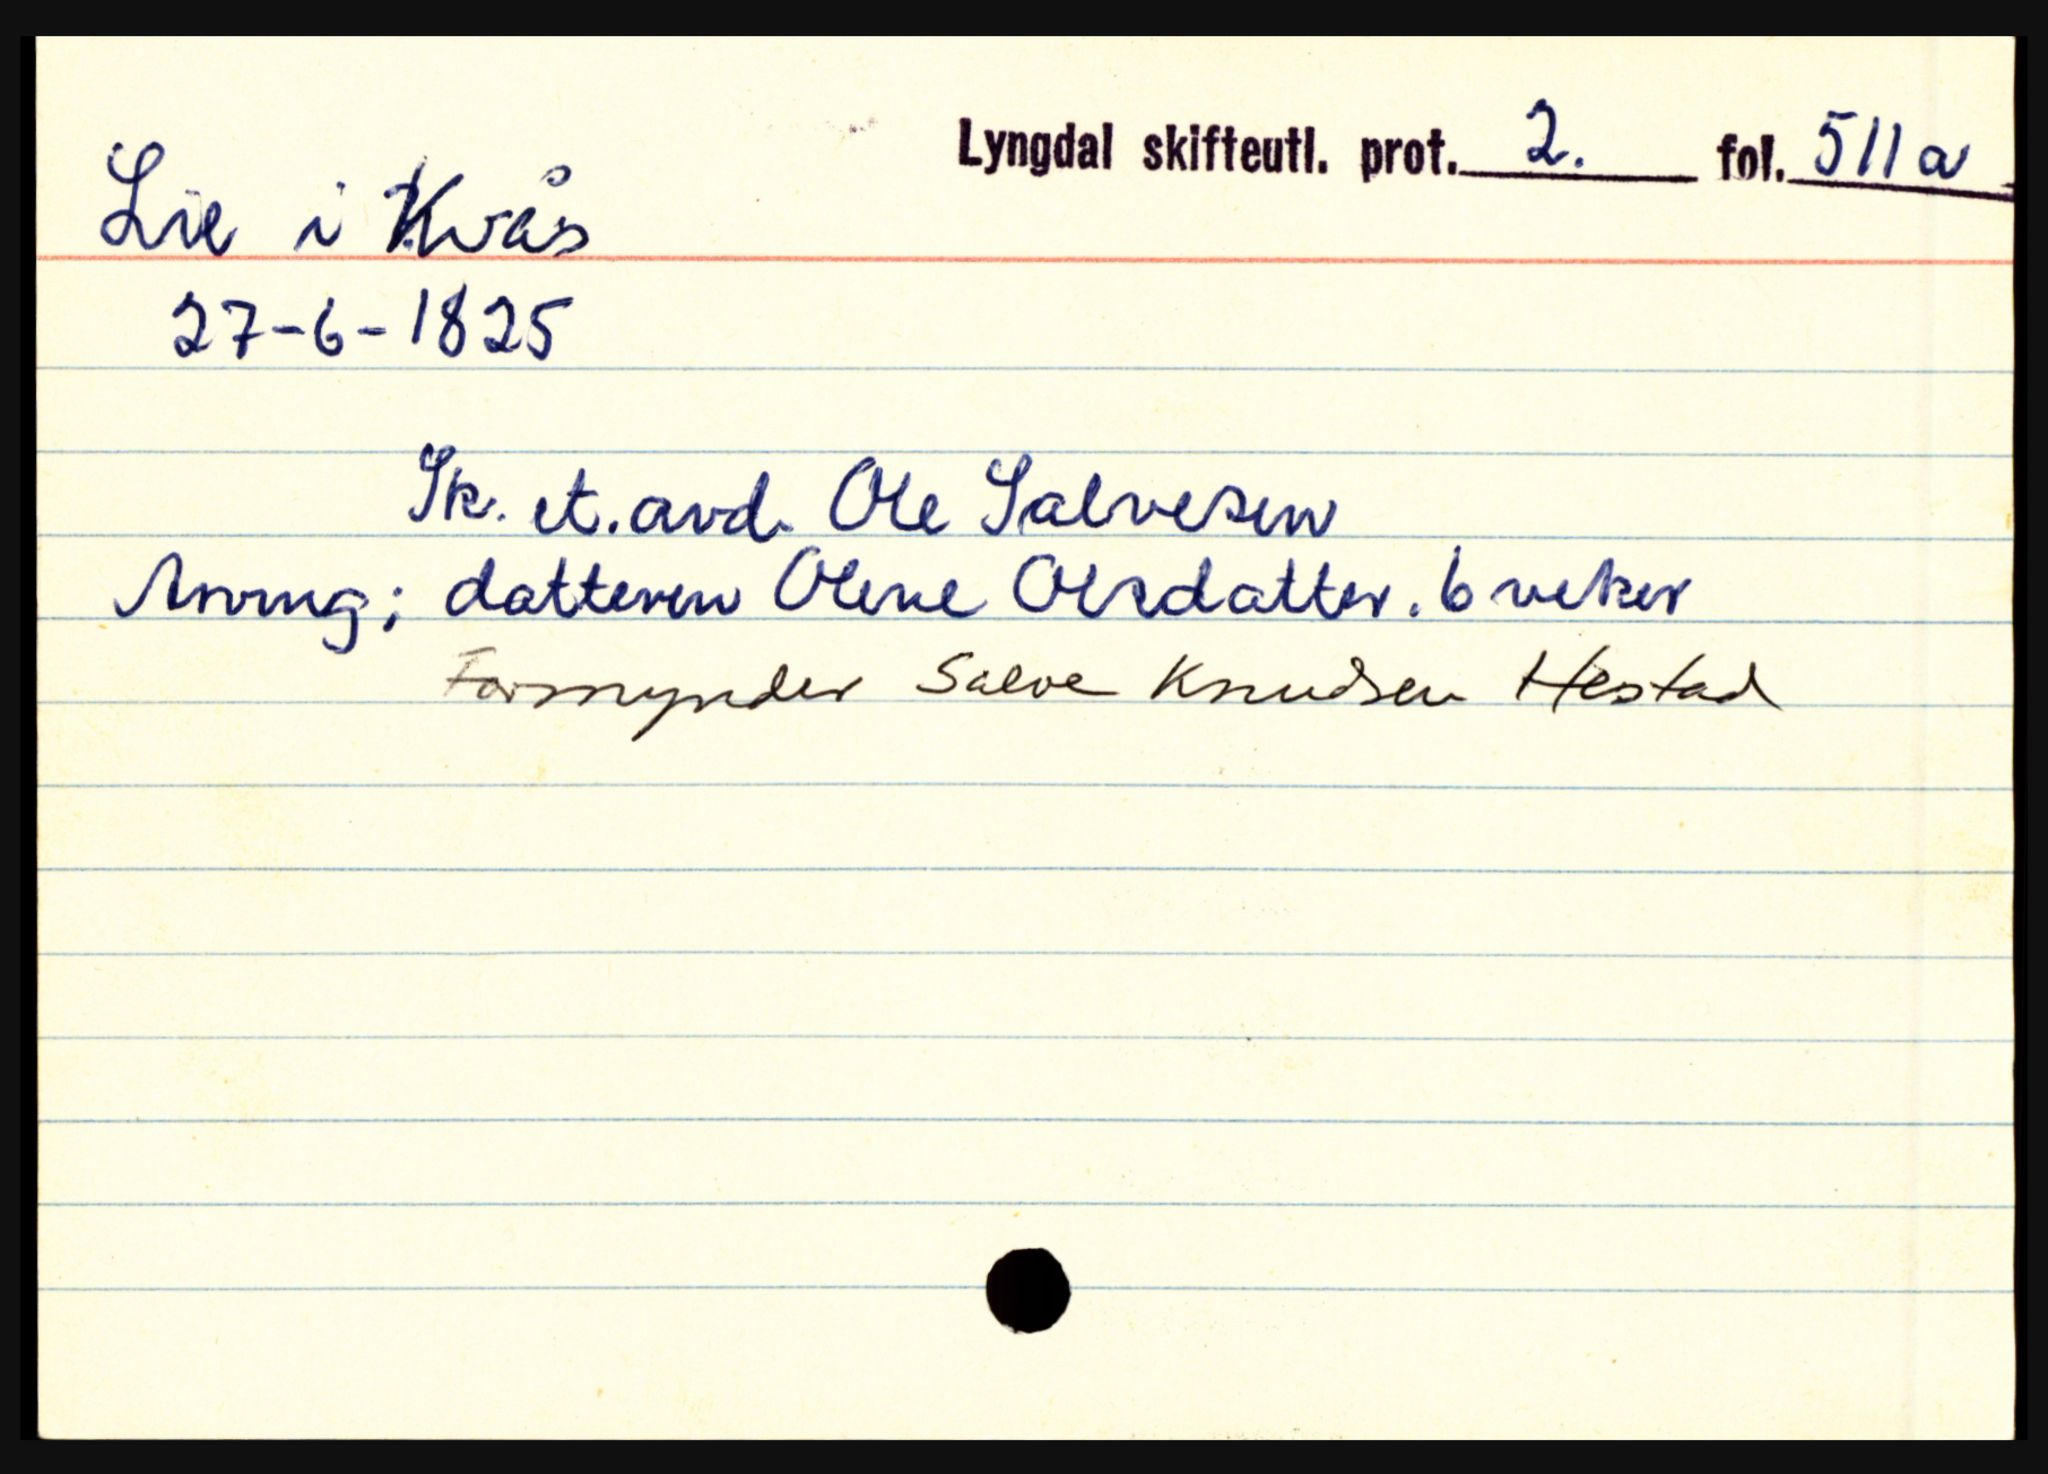 Lyngdal skifteutl. prot. 2. fol. 511a
Lie i Kvås
27-6-1825
Sk. et. avd. Ole Salvesen
Arving; datteren Olene Olsdatter. 6 veker
Formynder Salve Knudsen Hestad